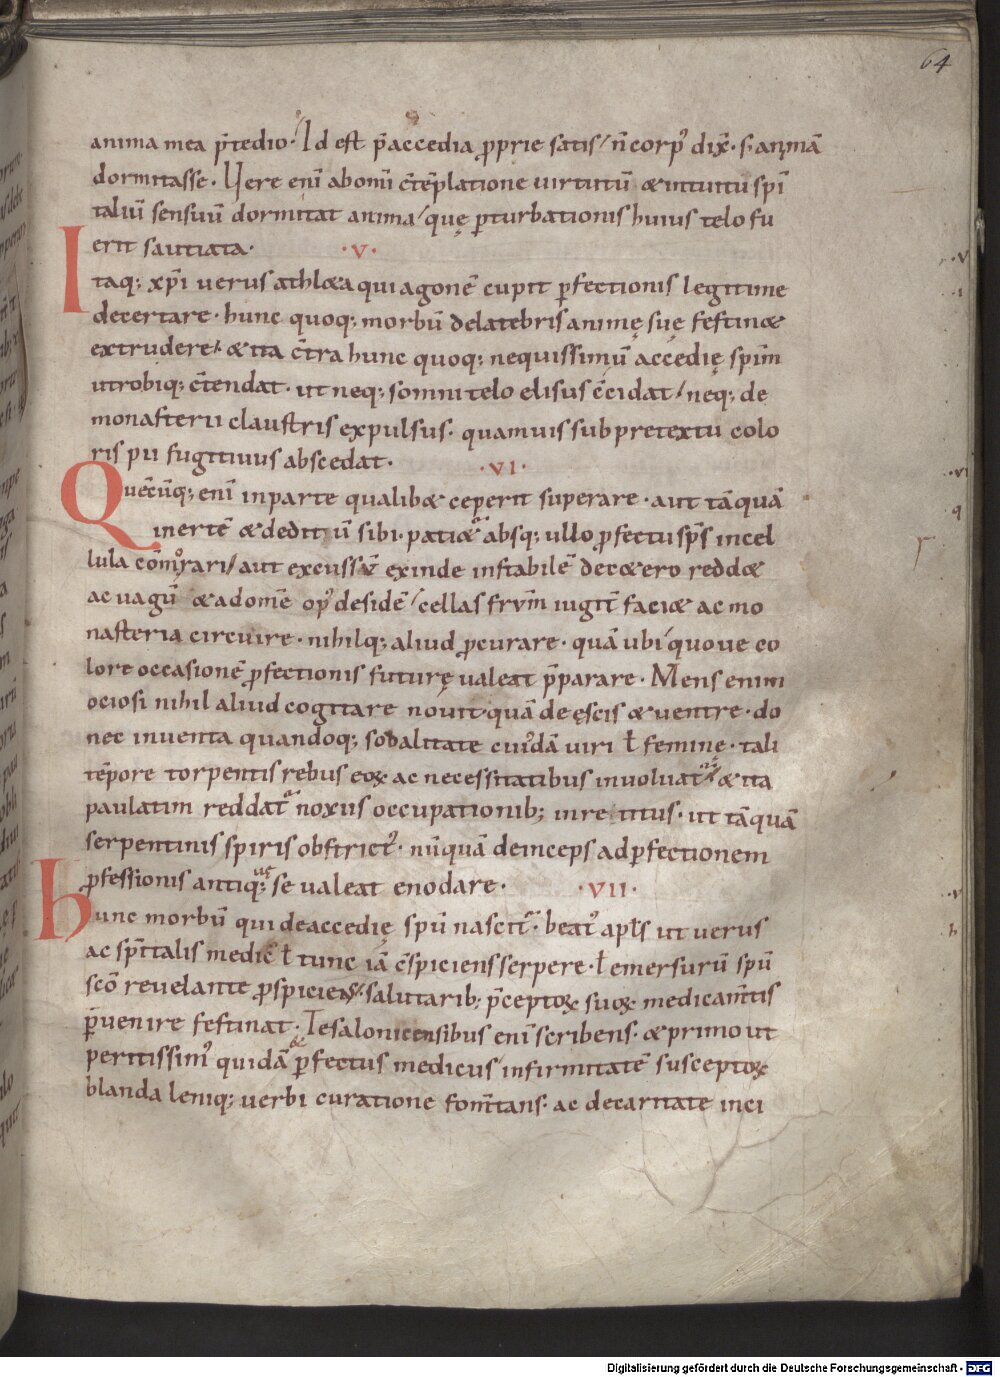 64
anima mea p̄ tedio· Id est p̄ accedia ꝓprie satis / n̄ corp᷒ dix̄· s· animā
dormitasse· Uere enī ab om̄i c̄tēplatione uirtutū & intuitu spi
taliū sensuū dormitat anima / quę ꝑturbationis huius telo fu
erit sautiata· ·V·
Itaq; xp̄i uerus athl&a qui agonē cupit ꝑfectionis legitime
decertare· hunc quoq; morbū de latebris animę suę festin&
extrudere· & ita c̄tra hunc quoq; nequissimū accedię spm̄
utrobiq; c̄tendat· ut neq; somni telo elisus c̄cidat / neq; de
monasterii claustris expulsus· quamuis sub pretextu colo
ris pii fugitiuus abscedat· ·VI·
Quēcūq; enī in parte qualib& ceperit superare· aut tāquā
inertē & deditū sibi· pati&ur absq; ullo ꝓfectu sp̄s in cel
lula cōmorari / aut excussū exinde instabilē de c&ero redd&
ac uagū & ad om̄e op᷒ desidē / cellas frūm iugit̄ faci& ac mo
nasteria circuire· nihilq; aliud ꝓcurare· quā ubi / quoue co
lore occasionē ꝓfectionis futurę ualeat p̄parare· Mens enim
ociosi nihil aliud cogitare nouit· quā de ęscis & uentre· do
nec inuenta quandoq; sodalitate cuiusdā uiri ł feminę· tali
tēpore torpentis rebus eoꝝ ac necessitatibus inuoluatur· & ita
paulatim reddatur noxus occupationib; inretitus· ut tāquā
serpentinis spiris obstrict᷒· nūquā deinceps ad ꝑfectionem
ꝓfessionis antiquę se ualeat enodare· ·VII·
hunc morbū qui de accedię spū nascitur· beat᷒ apłs ut uerus
ac sp̄italis medic᷒ ł tunc iā c̄spiciens serpere· ł emersurū spū
scō reuelante ꝓspiciens· salutarib; p̄ceptoꝝ suoꝝ medicam̄tis
p̄uenire festinat· Tesalonicensibus enī scribens· & primo ut
peritissim᷒ quidā & ꝑfectus medicus / infirmitatē susceptoꝝ
blanda leniq; uerbi curatione fom̄tans· ac de caritate inci
Digitalisierung gefördert durch die Deutsche Forschungsgemeinschaft - DFG